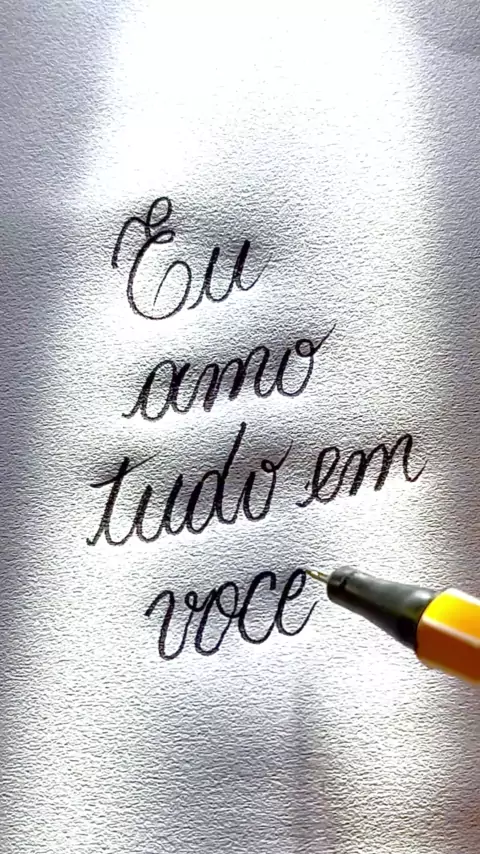 Eu
amo
tudo em
voce